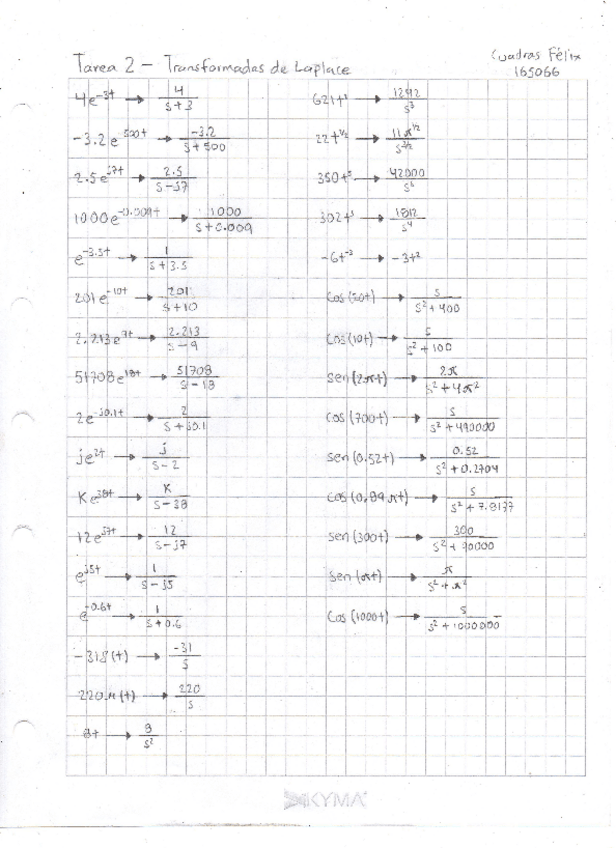 Tarea 2 – Transformadas de Laplace
Cuadras Félix
165066
4e^{-3t} → 4/(s+3)
-3.2e^{-500t} → -3.2/(s+500)
2.5e^{j7t} → 2.5/(s-j7)
1000e^{-0.009t} → 1000/(s+0.009)
e^{-3.5t} → 1/(s+3.5)
201e^{-10t} → 201/(s+10)
2.213e^{9t} → 2.213/(s-9)
51708e^{18t} → 51708/(s-18)
2e^{-j0.1t} → 2/(s+j0.1)
je^{2t} → j/(s-2)
Ke^{38t} → K/(s-38)
12e^{j7t} → 12/(s-j7)
e^{j5t} → 1/(s-j5)
e^{-0.6t} → 1/(s+0.6)
-31δ(t) → -31/s
220μ(t) → 220/s
8t → 8/s^2
621t^2 → 1242/s^3
22t^{1/2} → 11π^{1/2}/s^{3/2}
350t^5 → 42000/s^6
302t^3 → 1812/s^4
-6t^{-3} → -3t^2
Cos(20t) → s/(s^2+400)
Cos(10t) → s/(s^2+100)
sen(2πt) → 2π/(s^2+4π^2)
Cos(700t) → s/(s^2+490000)
sen(0.52t) → 0.52/(s^2+0.2704)
Cos(0.89πt) → s/(s^2+7.8177)
sen(300t) → 300/(s^2+90000)
sen(πt) → π/(s^2+π^2)
Cos(1000t) → s/(s^2+1000000)
KYMA